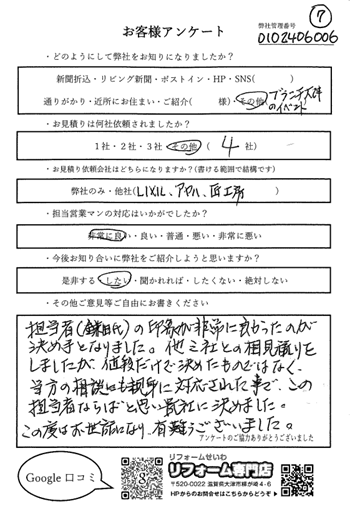 ⑦
お客様アンケート
弊社管理番号
0102406006
・どのようにして弊社をお知りになりましたか?
新聞折込・リビング新聞・ポストイン・HP・SNS( )
通りがかり・近所にお住まい・ご紹介( 様)・その他
ブランチ大津
のイベント
・お見積りは何社依頼されましたか?
1社・2社・3社 その他 ( 4 社)
・お見積り依頼会社はどちらになりますか?(書ける範囲で結構です)
弊社のみ・他社(LIXIL、アヤハ、匠工房)
・担当営業マンの対応はいかがでしたか?
非常に良い・良い・普通・悪い・非常に悪い
・今後お知り合いに弊社をご紹介しようと思いますか?
是非する・したい・聞かれれば・したくない・絶対しない
・その他ご意見等ご自由にお書きください
担当者(鎌田氏)の印象が非常に良かったのが
決め手となりました。他3社との相見積りを
しましたが、値段だけで決めたものではなく、
当方の相談にも親身に対応された事で、この
担当者ならばと思い貴社に決めました。
この度はお世話になり、有難うございました。
アンケートのご協力ありがとうございました
Google 口コミ
リフォームせいわ
リフォーム専門店
〒520-0022 滋賀県大津市柳が崎4-6
HPからのお問合せはこちらからどうぞ